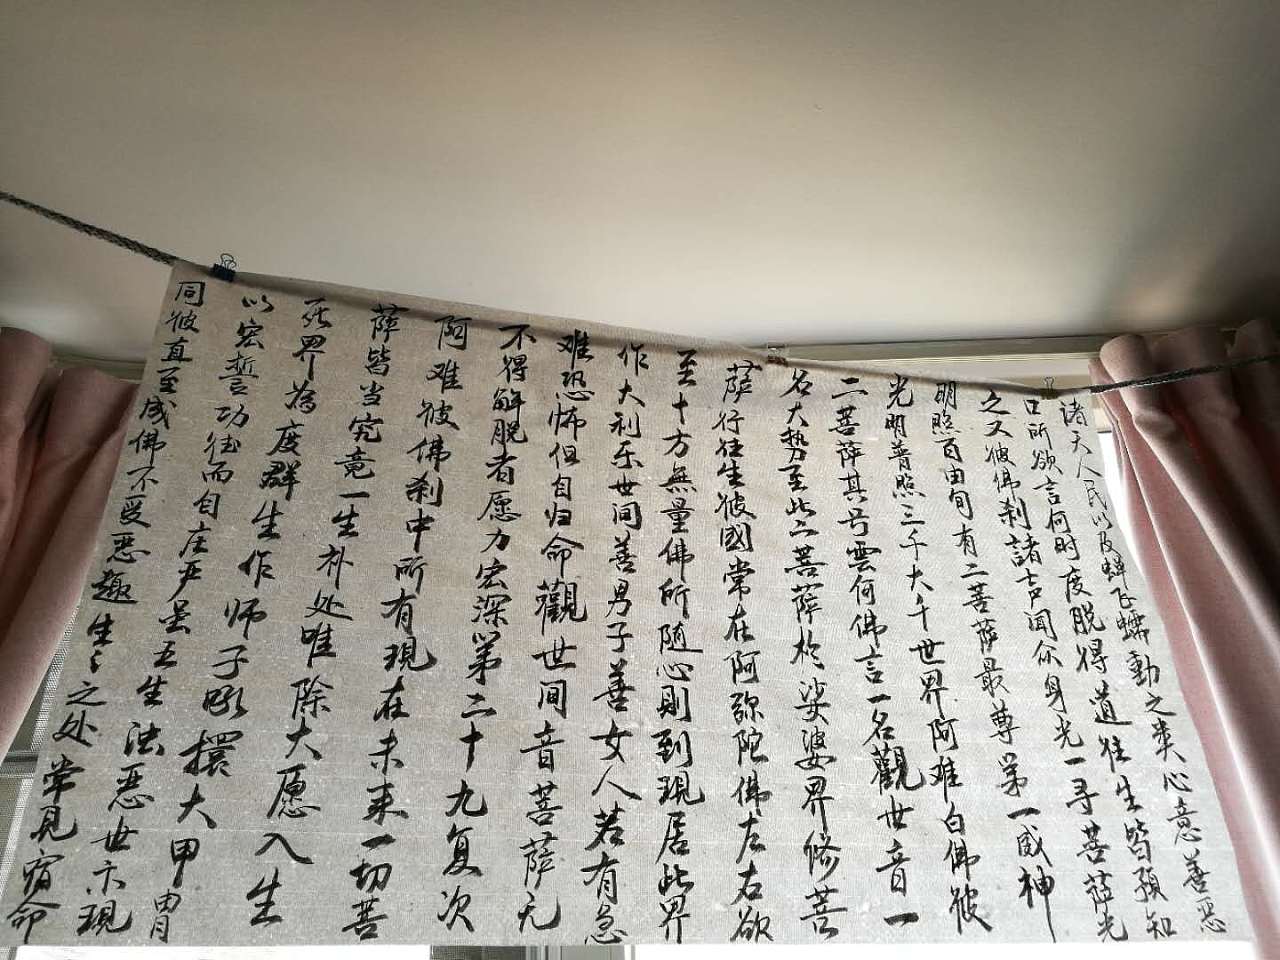 诸天人民以及蜎飞蠕動之类心意善恶
口所欲言何时度脱得道往生皆預知
之又彼佛刹諸声闻众身光一寻菩萨光
明照百由旬有二菩萨最尊第一威神
光明普照三千大千世界阿难白佛彼
二菩萨其号雲何佛言一名觀世音一
名大势至此二菩萨於娑婆界修菩
萨行往生彼國常在阿弥陀佛左右欲
至十方無量佛所随心則到現居此界
作大利乐世间善男子善女人若有急
难恐怖但自归命觀世间音菩萨无
不得解脱者愿力宏深第二十九复次
阿难彼佛刹中所有現在未来一切菩
萨皆当究竟一生补处唯除大愿入生
死界為度群生作师子吼擐大甲胄
以宏誓功德而自庄严虽五生浊恶世示現
同彼直至成佛不受恶趣生〻之处常見宿命